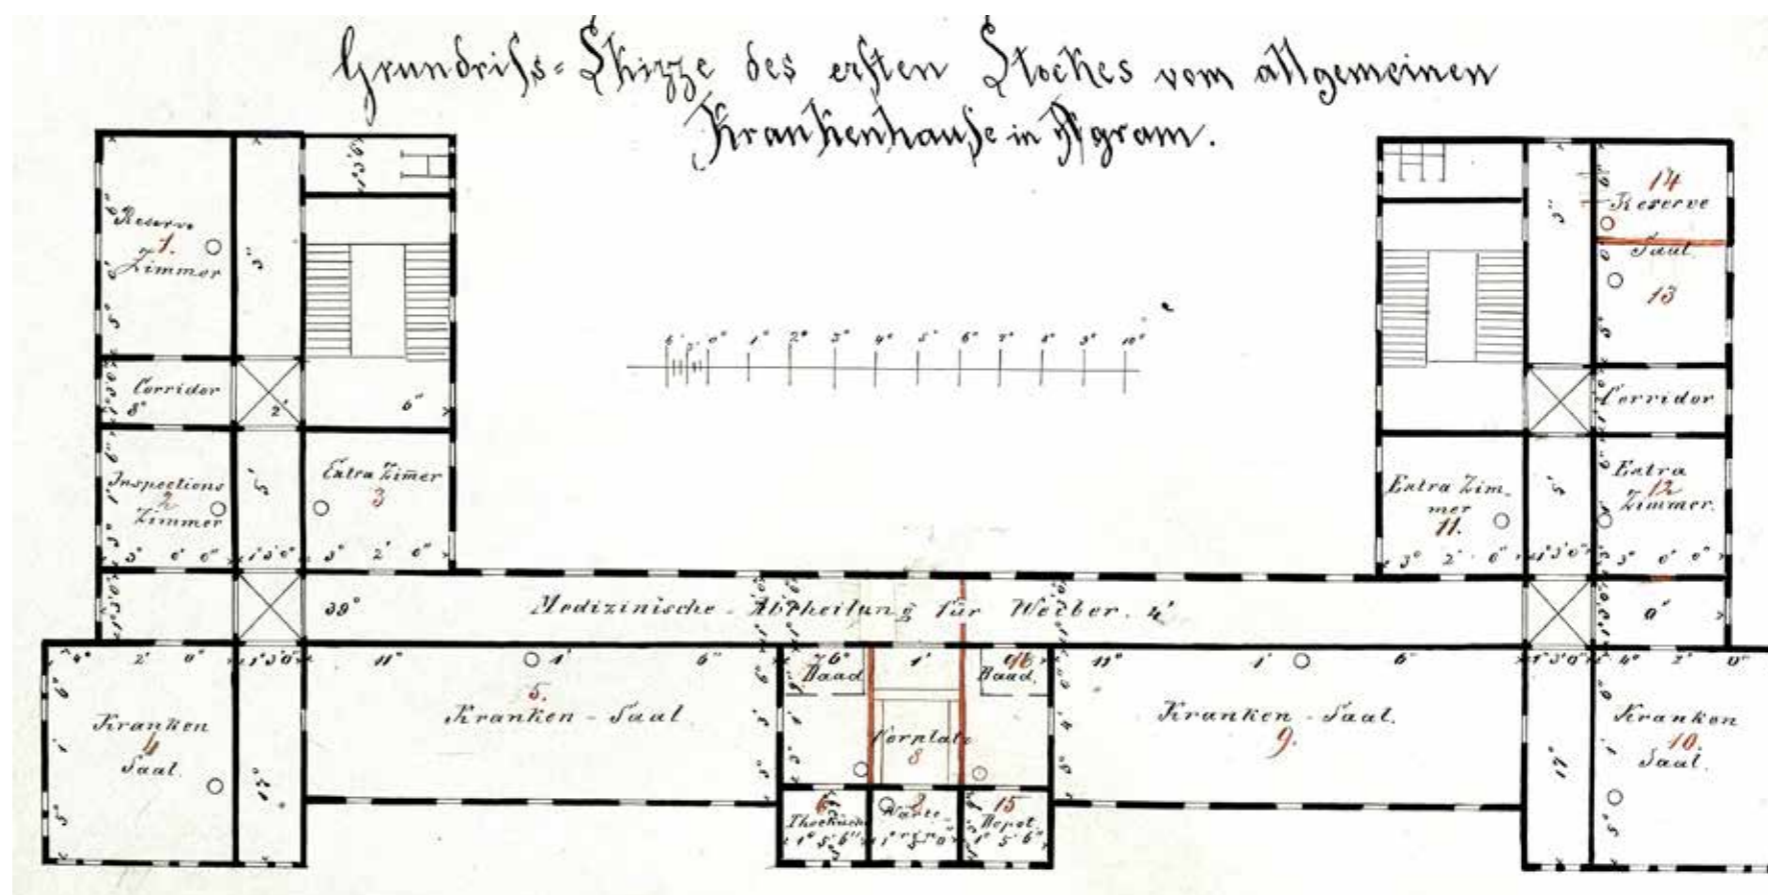 Grundriſs-Skizze des erſten Stockes vom allgemeinen
Krankenhauſe in Agram.
Reserve
1.
Zimmer
3°
Corridor
8°
2'
6"
Inspections
2
Zimmer
3° 0' 0"
1° 3' 0"
Extra Zim̄er
3
3° 2' 0"
6' 3' 0° 1° 2° 3° 4° 5° 6° 7° 8° 9° 10°
14
Reserve
Saal.
13
Corridor
Extra Zim-
mer
11.
3° 2' 6"
1° 3' 0"
Extra
12
Zimmer.
3° 0' 0"
39°
Medizinische-Abtheilung für Weiber. 4'
4° 2' 0"
1° 3' 0"
Kranken
4
Saal.
11° 1' 6"
5.
Kranken-Saal
Baad
1'
16
Baad.
Vorplatz
8
6
Theeküche
1° 5' 6"
Warte-
rin
15
Depot.
1° 5' 6"
11° 1' 6"
Kranken-Saal.
9.
1° 3' 0"
4° 2' 0"
Kranken
10.
Saal.